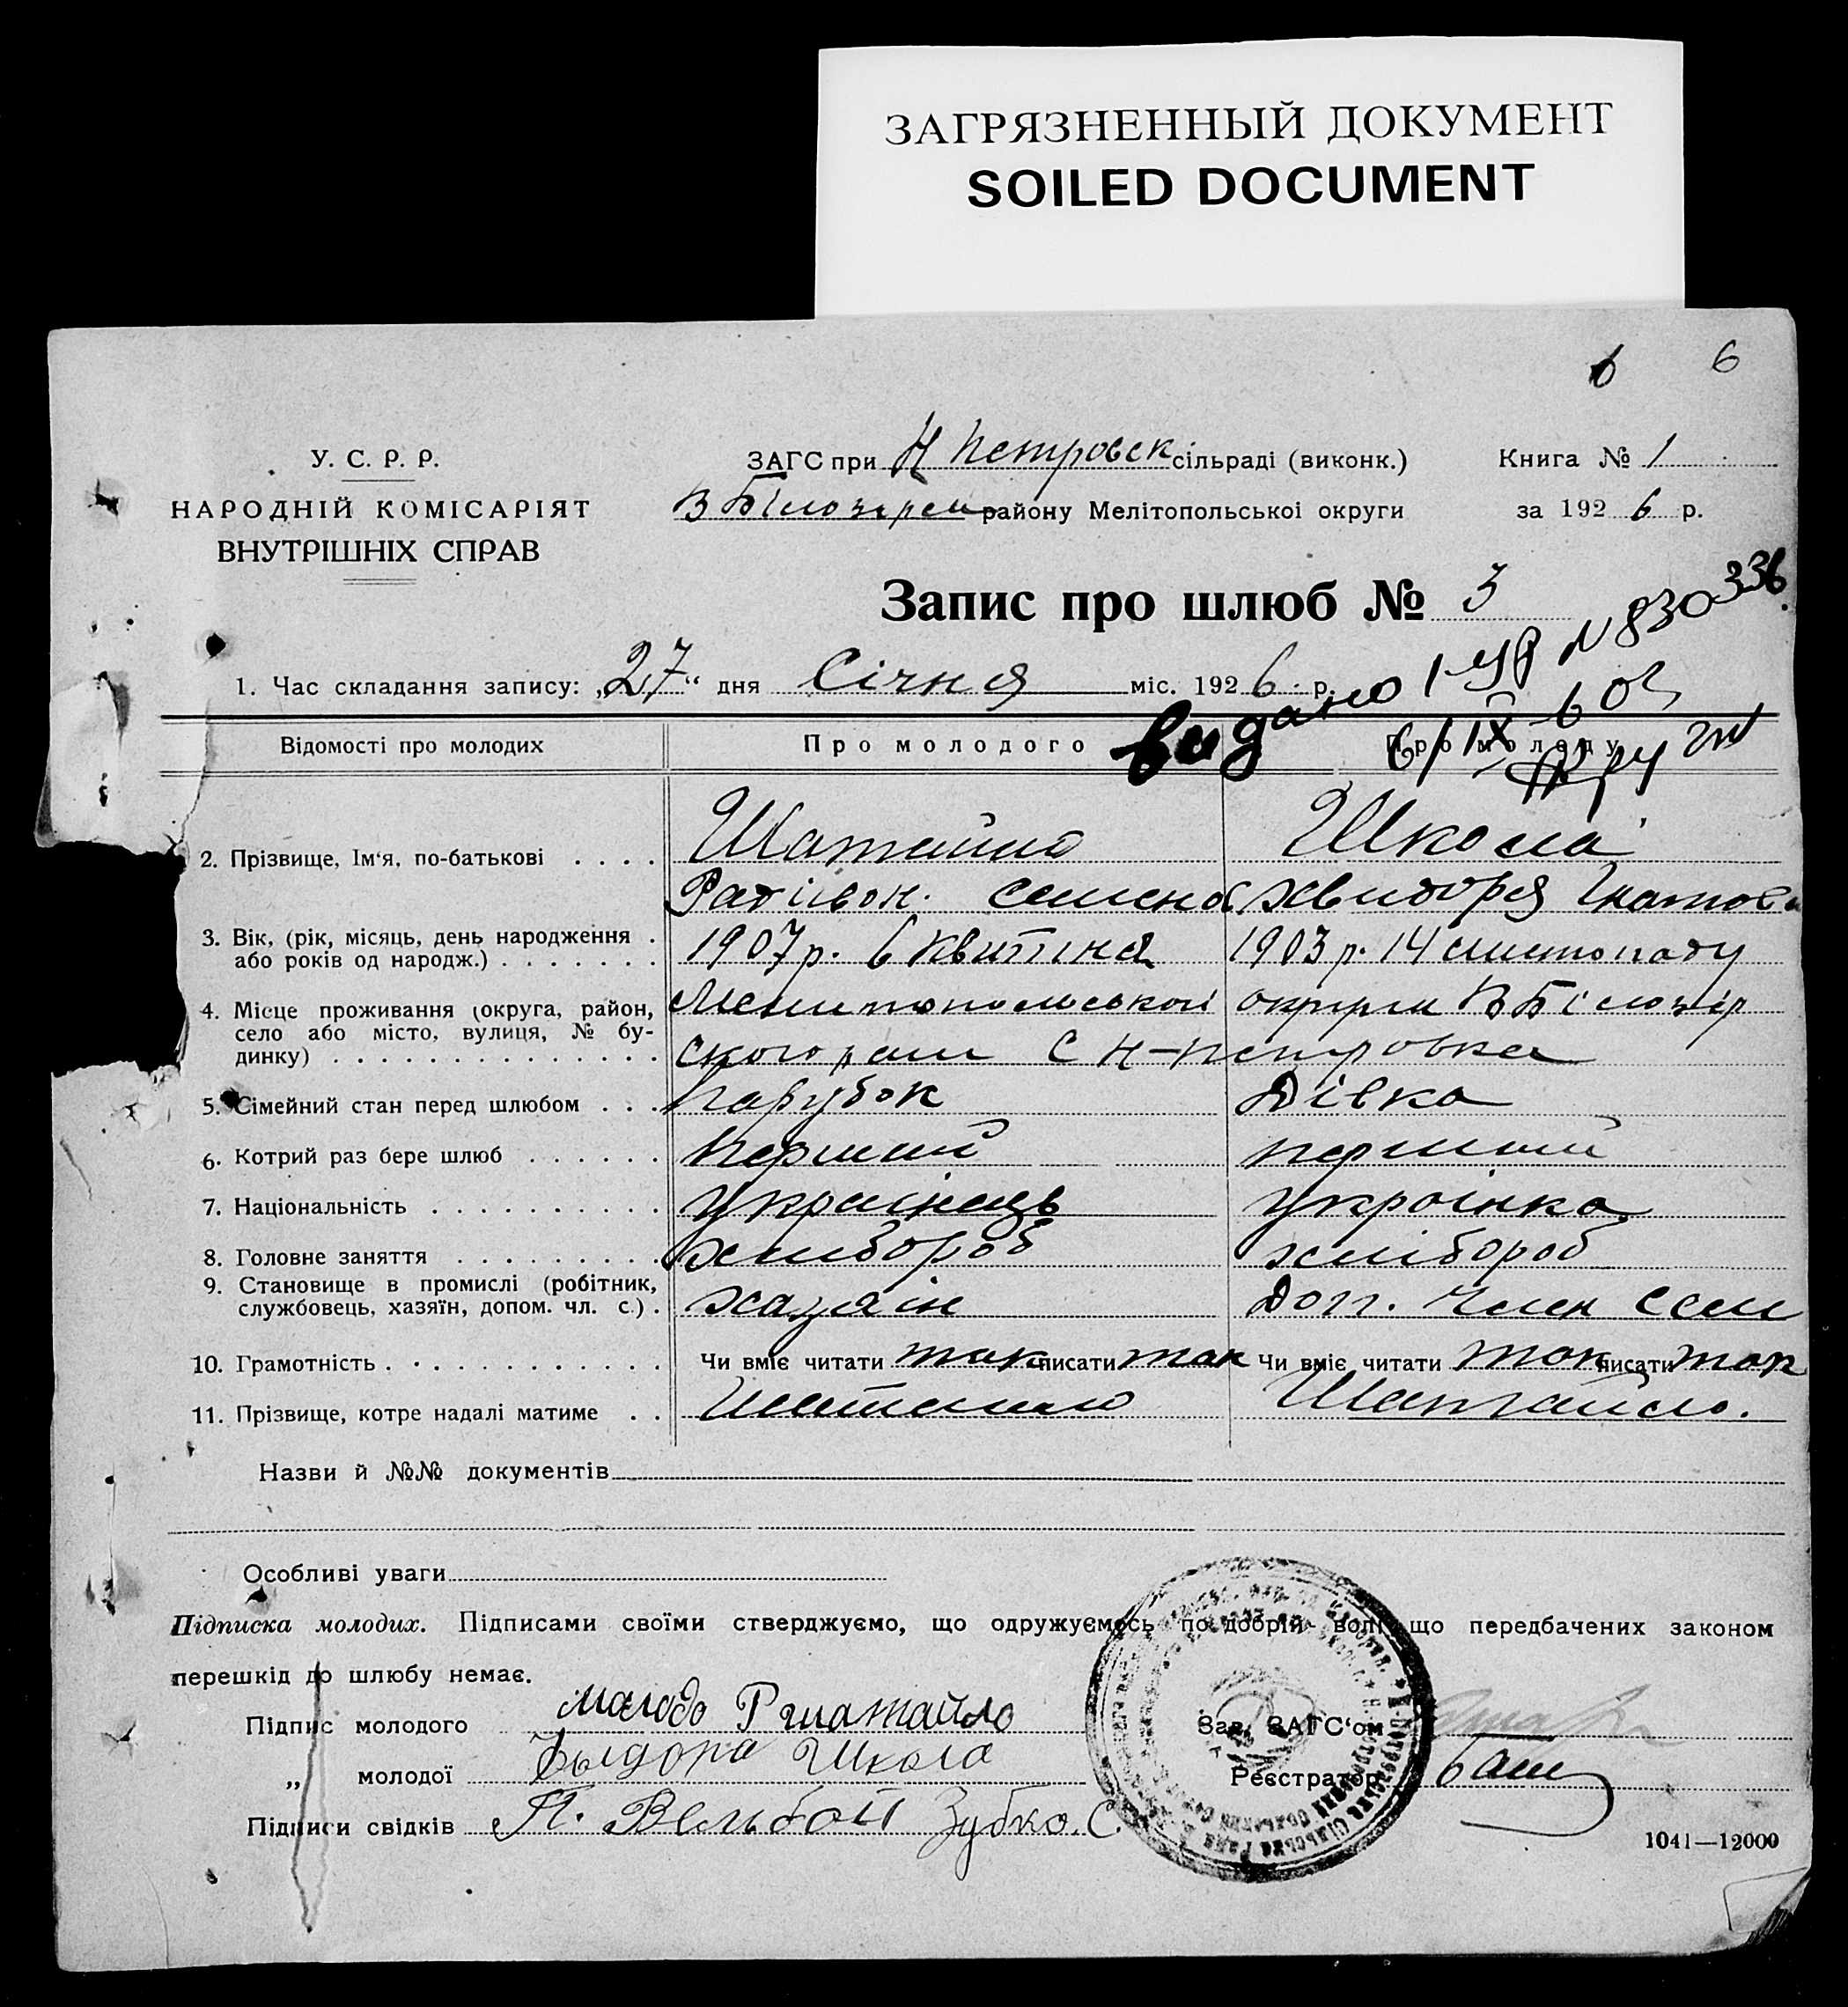 ЗАГРЯЗНЕННЫЙ ДОКУМЕНТ
SOILED DOCUMENT
6 6
У. С. Р. Р.
НАРОДНІЙ КОМІСАРІЯТ
ВНУТРІШНІХ СПРАВ
ЗАГС при Н Петровск сільраді (виконк.)
В Білозерск району Мелітопольської округи
Книга № 1
за 1926 р.
Запис про шлюб № 3
1. Час складання запису: „27“ дня Січня міс. 1926 р.
видано І-УР N 830336
6/IX 60
Відомості про молодих Про молодого Про молоду
2. Прізвище, Ім'я, по-батькові . . . . Шатайло Школа
Семенов Хвидоря Гнатова
3. Вік, (рік, місяць, день народження . або років од народж.) . . . . . . . 1907 р. 6 Квітня 1903 р. 14 листопаду
4. Місце проживання (округа, район, село або місто, вулиця, № будинку) . . . . . . . . . . . . . . Мелитопольської округи В Білозір
ского рай с Н-Петровка
5. Сімейний стан перед шлюбом . . . Парубок Дівка
6. Котрий раз бере шлюб . . . . . . Перший перший
7. Національність . . . . . . . . . . Українець Українка
8. Головне заняття . . . . . . . . . хлибороб хлібороб
9. Становище в промислі (робітник, службовець, хазяїн, допом. чл. с.) . хазяїн Доп. член сем
10. Грамотність . . . . . . . . . . . . Чи вміє читати так писати так Чи вміє читати так писати так
11. Прізвище, котре надалі матиме . . Шатайло Шатайло.
Назви й №№ документів
Особливі уваги
Підписка молодих. Підписами своїми стверджуємо, що одружуємось по добрій волі що передбачених законом
перешкід до шлюбу немає.
Підпис молодого Р Шатайло
„ молодої Школа
Підписи свідків Зубко. С.
Зав. ЗАГС'ом
Реєстратор
1041—12000